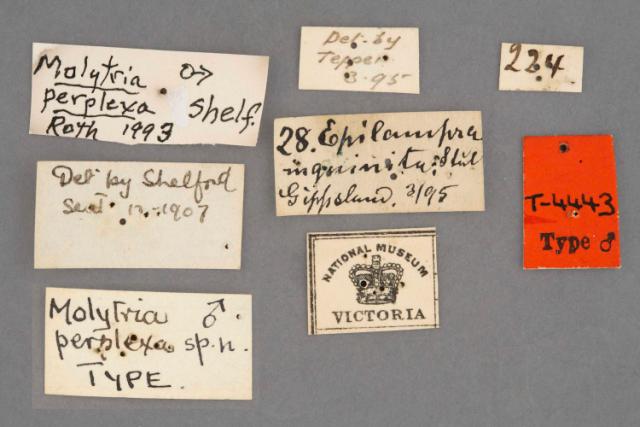 Molytria ♂
perplexa Shelf.
Roth 1993
Det. by
Tepper
3.95
224
28. Epilampra
inquinita: Stål
Gippsland. 3/95
Det. by Shelford
1907
T-4443
Type ♂
NATIONAL MUSEUM
VICTORIA
Molytria ♂
perplexa sp. n.
TYPE.